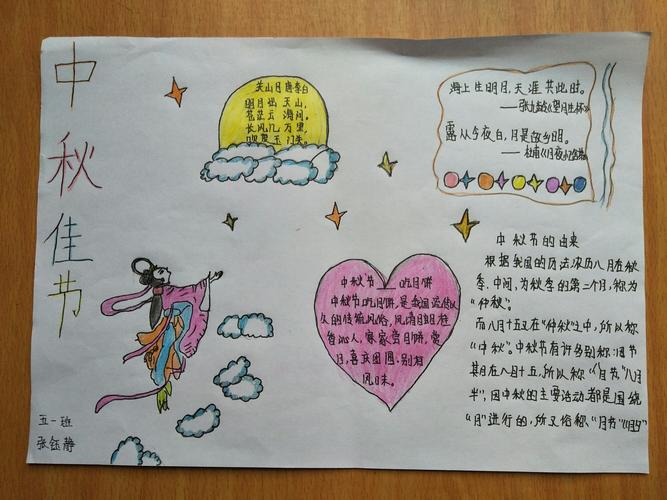 中秋佳节
关山月 唐 李白
明月出 天山，
苍茫云 海间。
长风几 万里，
吹 玉 门关。
海上生明月，天涯共此时。
——张九龄《望月
露从今夜白，月是故乡明。
——杜甫《月夜忆舍弟》
中秋节的由来
根据我国的历法，农历八月在秋
季，中间，为秋季的第二个月，称为
“仲秋”。
而八月十五又在“仲秋”之中，所以称
“中秋”。中秋节有许多别称：因节
期在八月十五，所以称“月节”“八月
半”，因中秋的主要活动都是围绕
“月”进行的，所又俗称“月节”“月夕”
中秋节——吃月饼
中秋节吃月饼，是我国流传以
久的传统风俗，风清月朗桂
香沁人，家家尝月饼，赏
月，喜庆团圆，别有
风味。
五一班
张钰静